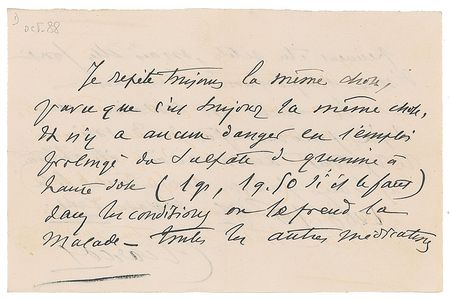 D
OCT. 88
Je repète toujours la même chose,
parce que c'est toujours la même chose,
Il n'y a aucun danger en l'emploi
prolongé du Sulfate de quinine à
haute dose (1gr, 1g.50 s'il le faut)
dans les conditions où le prend la
malade — toutes les autres médications